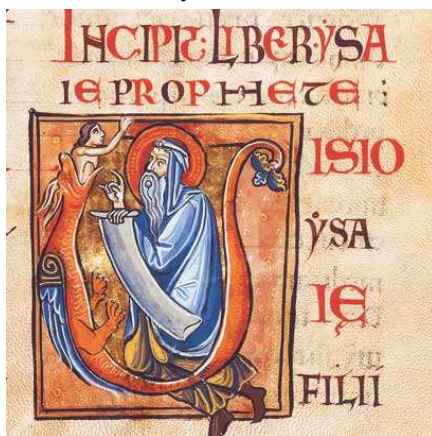 INCIPIT·LIBER·ẎSA
IE PROPHETE :
VISIO
ẎSA
IĘ
FILII